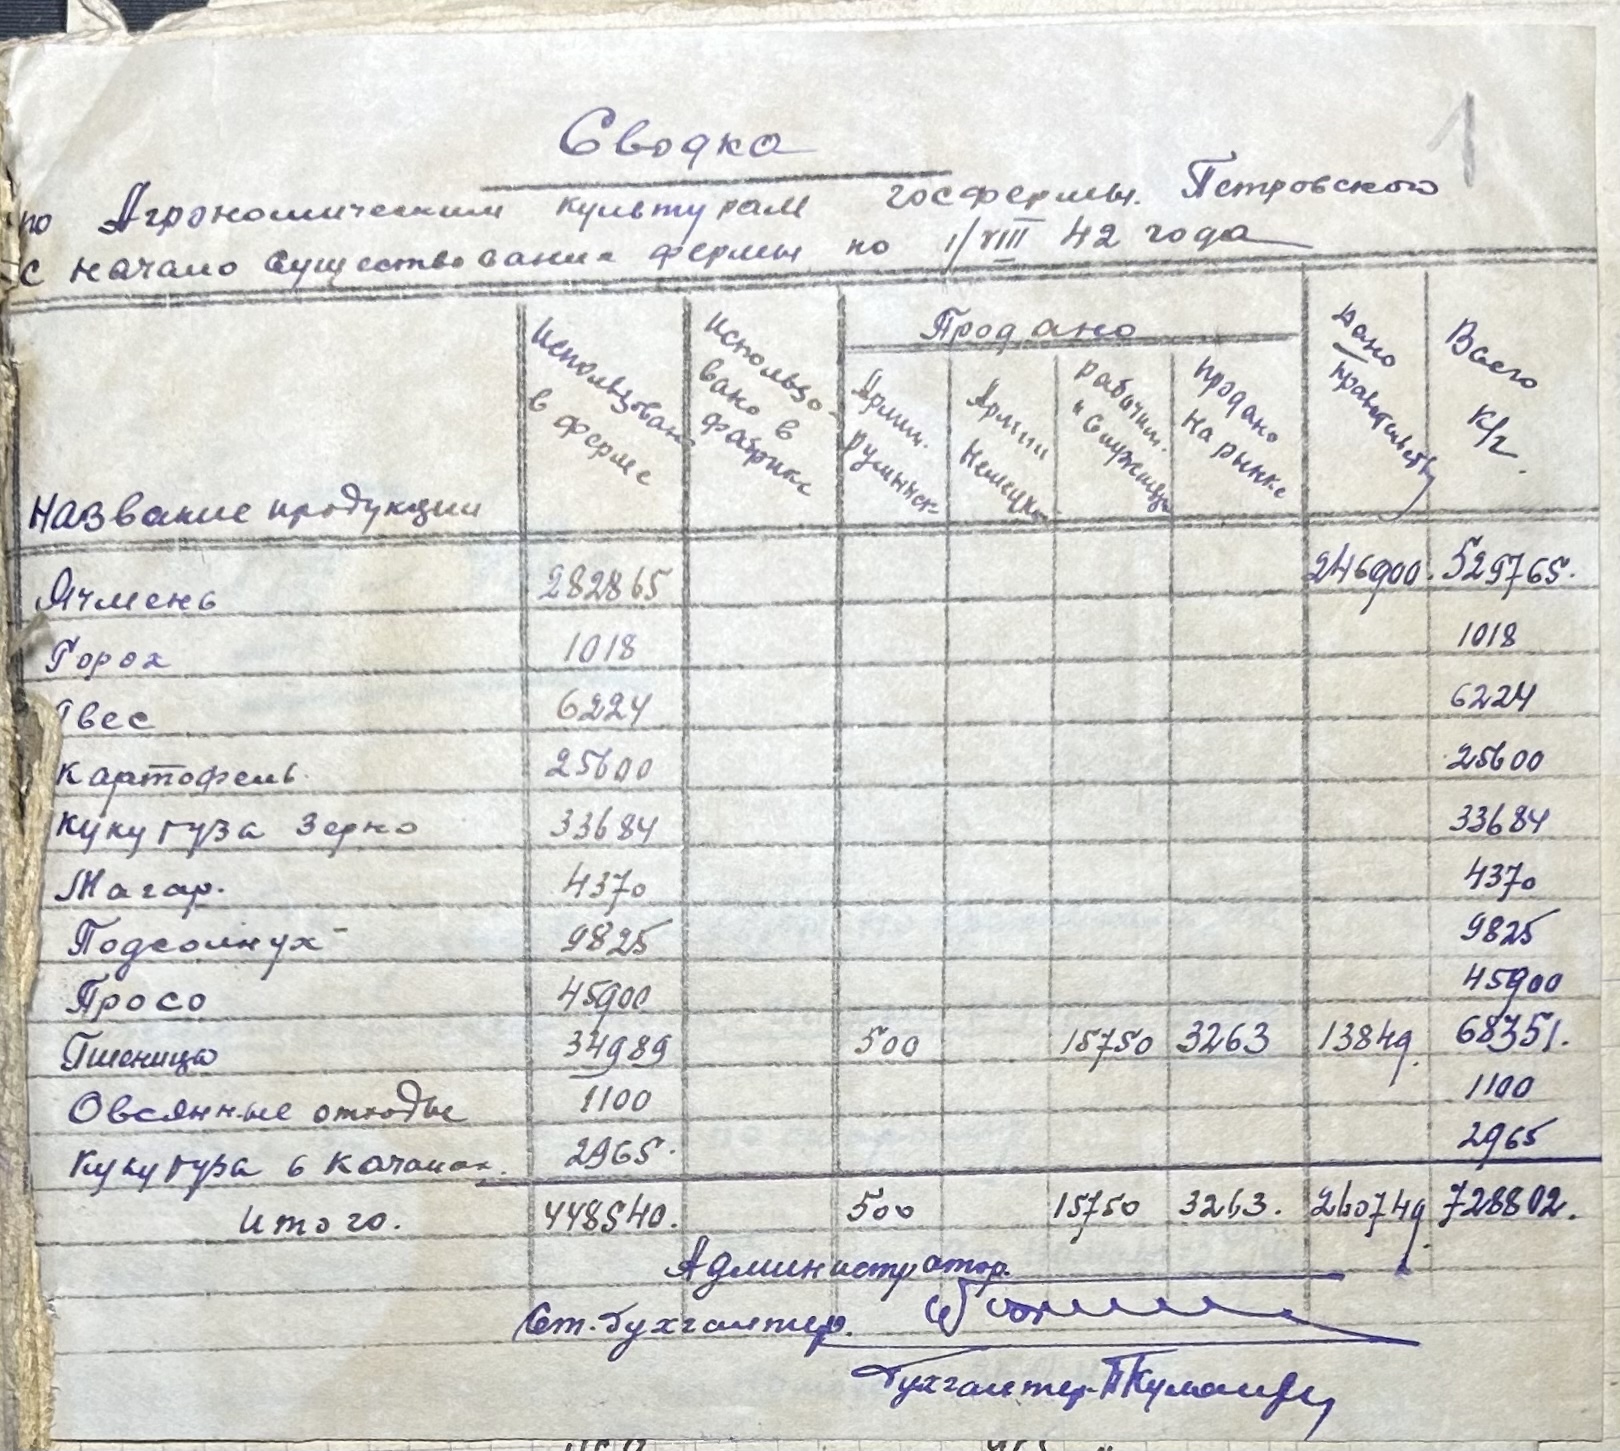 1
Сводка
по Агрономическим культурам госфермы. Петровского
с начало существования фермы по 1/VIII 42 года
Название продукции Использовано в ферме Использовано в фабрике Продано Армии румынск. Армии Немецкой рабочим. и Служащим Продано на рынке Дано Правительству Всего к/г.
Ячмень 282865 246900. 529765.
Горох 1018 1018
Овес 6224 6224
Картофель. 25600 25600
Кукуруза Зерно 33684 33684
Магар. 4370 4370
Подсолнух 9825 9825
Просо 45900 45900
Пшеница 34989 500 15750 3263 13849. 68351.
Овсянные отходы 1100 1100
Кукуруза в качанах. 2965. 2965
Итого. 448540. 500 15750 3263. 260749. 728802.
Администратор.
Ст. бухгалтер.
Бухгалтер